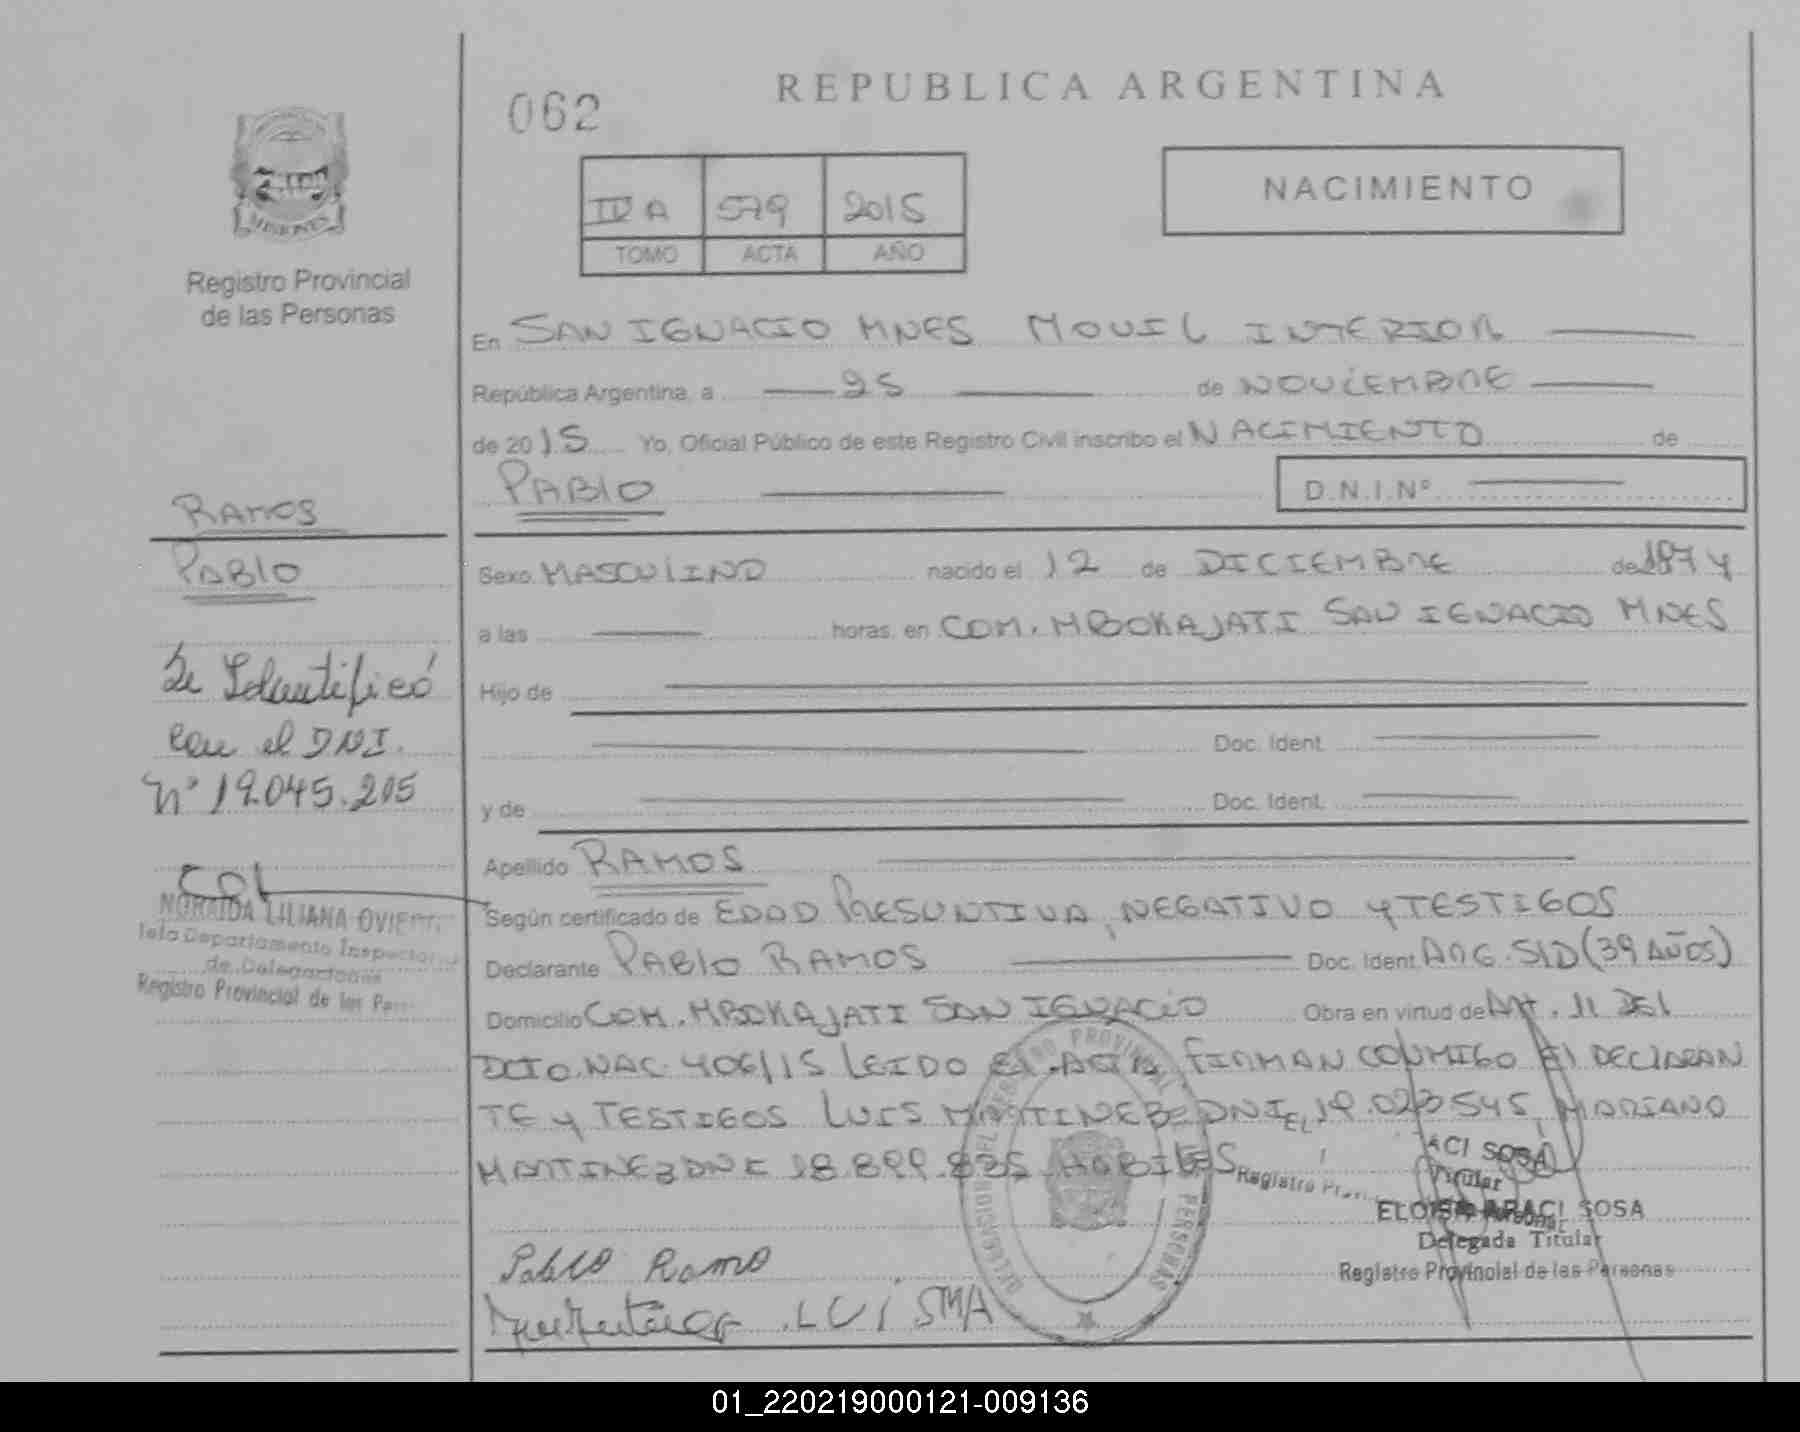 062
REPUBLICA ARGENTINA
NACIMIENTO
579 2015
TOMO ACTA AÑO
MISIONES
Registro Provincial
de las Personas
En SAN IGNACIO MNES MOVIL INTERIOR
República Argentina, a 25 de NOVIEMBRE
de 2015 Yo, Oficial Público de este Registro Civil inscribo el NACIMIENTO de
PABLO D.N.I.Nº
RAMOS
PABLO
Se Identificó
con el DNI.
Nº 19.045.205
NORAIDA LILIANA
Departamento
de Delegaciones
Registro Provincial de las
Sexo MASCULINO nacido el 12 de DICIEMBRE de
a las horas, en COM. MBOKAJATI SAN IGNACIO MNES
Hijo de
Doc. Ident.
y de Doc. Ident.
Apellido RAMOS
Según certificado de EDAD PRESUNTIVA, NEGATIVO Y TESTIGOS
Declarante PABLO RAMOS Doc. Ident. ARG. S/D (39 AÑOS)
Domicilio COM. MBOKAJATI SAN IGNACIO Obra en virtud de Art. 11 DEL
DCTO. NAC. 406/15 LEIDO EL ACTA FIRMAN CONMIGO EL DECLARAN
TE Y TESTIGOS LUIS MARTINEZ DNI 19.023.545 MARIANO
MARTINEZ DNI 18.899.835 HABILES
ACI SOSA
Titular
Registro
ELOISA ARACI SOSA
Delegada Titular
Registro Provincial de las Personas
Pablo Ramo
LUISMA
REGISTRO PROVINCIAL
PERSONAS
01_220219000121-009136